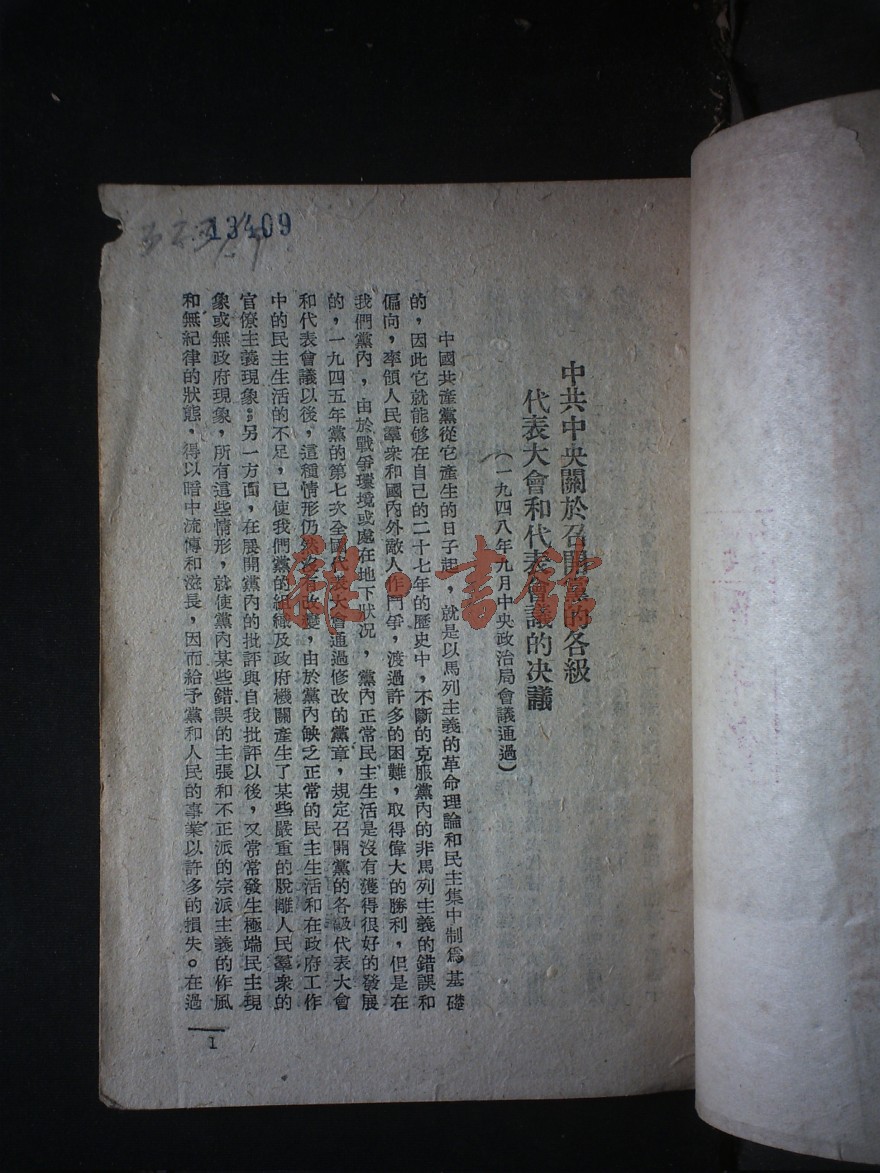 13409
中共中央關於召開黨的各級
代表大會和代表會議的決議
(一九四八年九月中央政治局會議通過)
中國共產黨從它產生的日子起，就是以馬列主義的革命理論和民主集中制爲基礎
的，因此它就能够在自己的二十七年的歷史中，不斷的克服黨內的非馬列主義的錯誤和
偏向，率領人民羣衆和國內外敵人作鬥爭，渡過許多的困難，取得偉大的勝利，但是在
我們黨內，由於戰爭環境或處在地下狀況，黨內正常民主生活是沒有獲得很好的發展
的，一九四五年黨的第七次全國代表大會通過修改的黨章，規定召開黨的各級代表大會
和代表會議以後，這種情形仍然沒有改變，由於黨內缺乏正常的民主生活和在政府工作
中的民主生活的不足，已使我們黨的組織及政府機關產生了某些嚴重的脫離人民羣衆的
官僚主義現象；另一方面，在展開黨內的批評與自我批評以後，又常常發生極端民主現
象或無政府現象，所有這些情形，就使黨內某些錯誤的主張和不正派的宗派主義的作風
和無紀律的狀態，得以暗中流傳和滋長，因而給予黨和人民的事業以許多的損失。在過
1
雜·書館